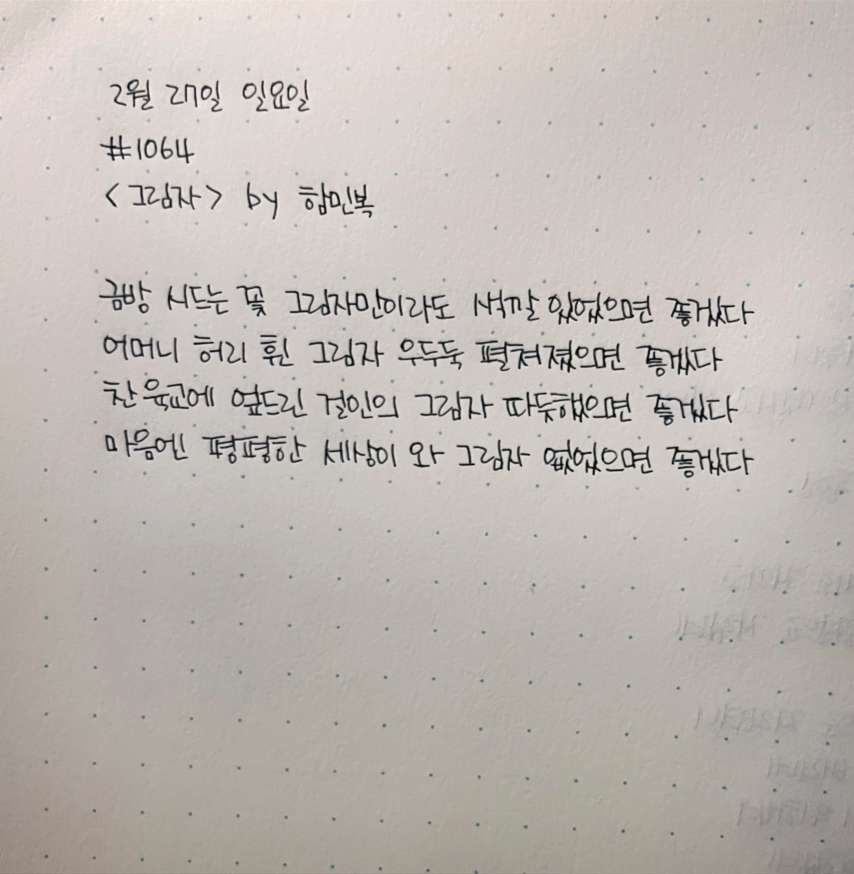 2월 27일 일요일
#1064
<그림자> by 함민복
금방 시드는 꽃 그림자만이라도 색깔 있었으면 좋겠다
어머니 허리 휜 그림자 우두둑 펼쳐졌으면 좋겠다
찬 육교에 엎드린 걸인의 그림자 따듯했으면 좋겠다
마음엔 평평한 세상이 와 그림자 없었으면 좋겠다